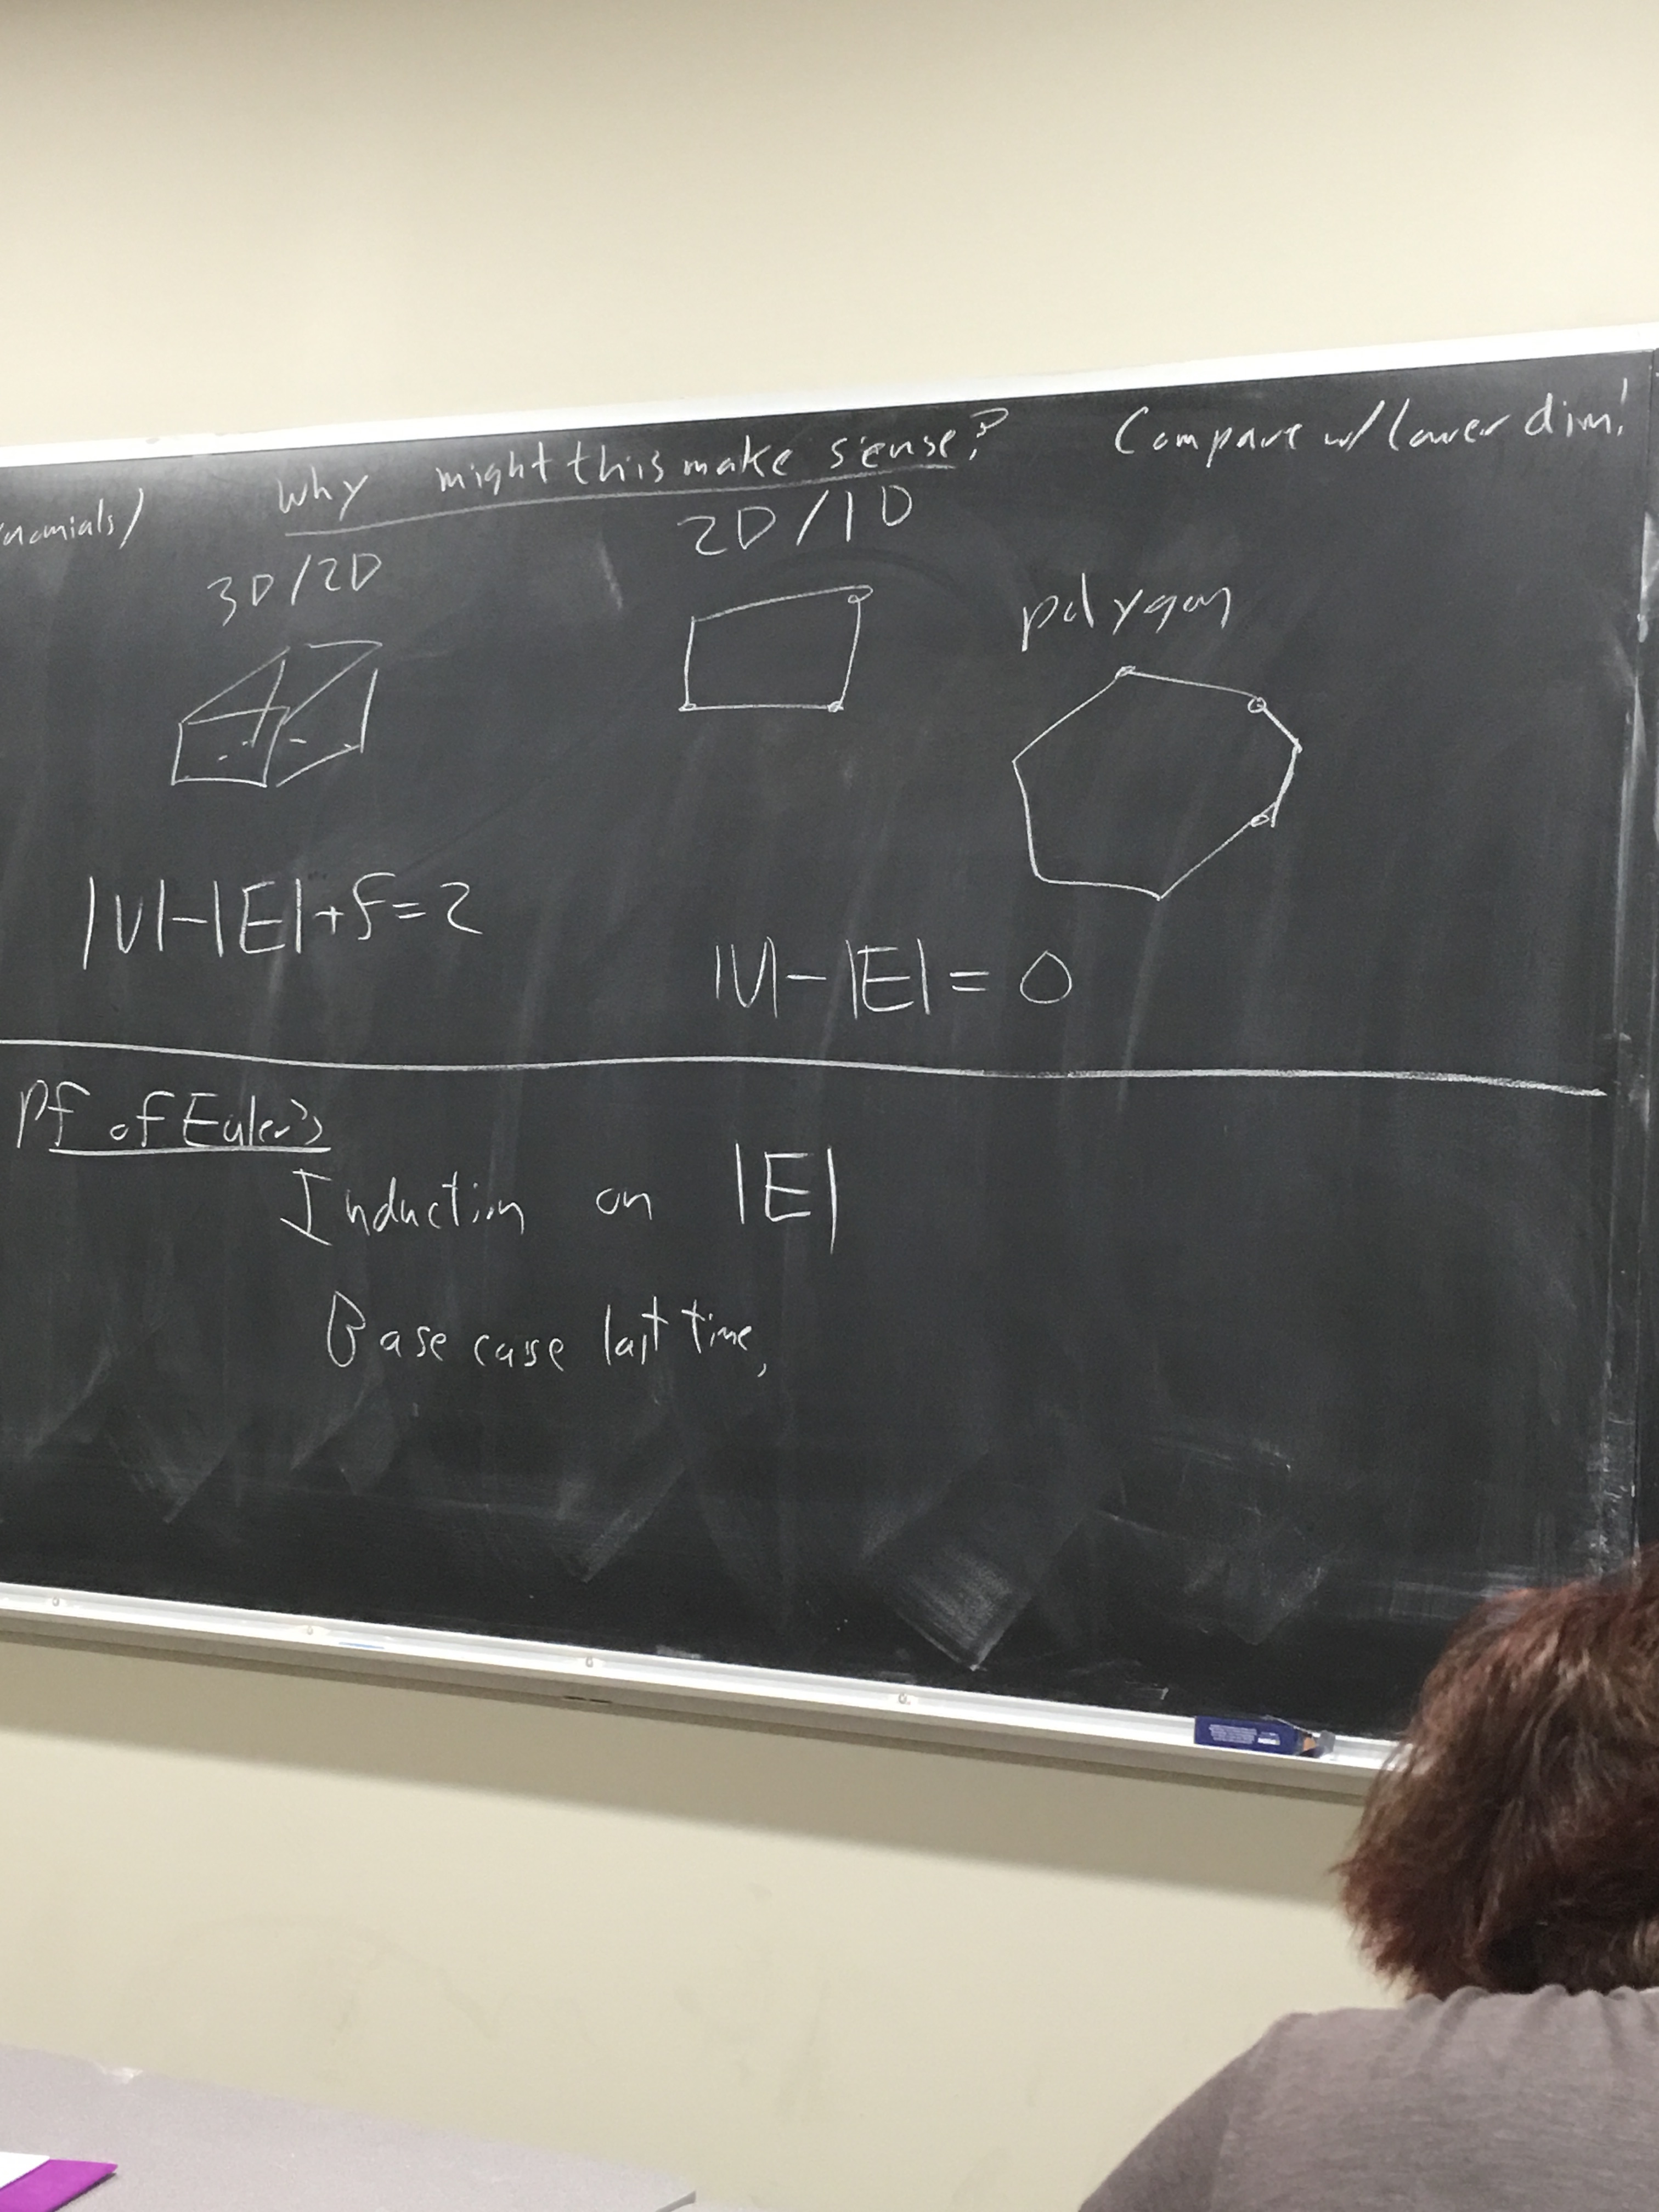 Why might this make sense? Compare w/ lower dim!
nomials)
3D/2D
2D/1D
polygon
|V|-|E|+f=2
|V|-|E|=0
Pf of Euler's
Induction on |E|
Base case last time,